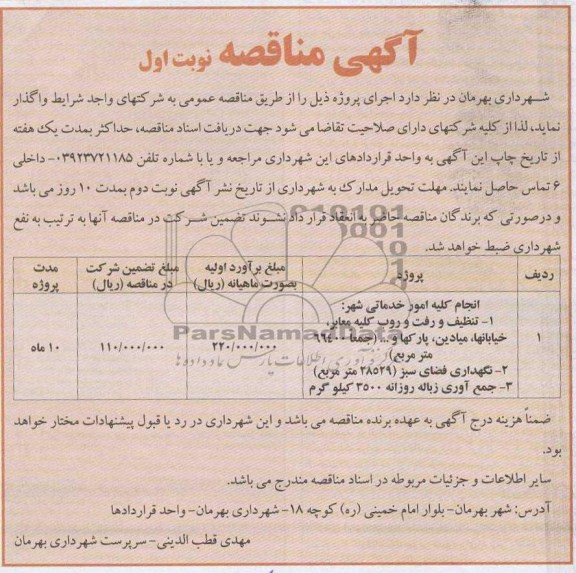 آگهی مناقصه نوبت اول
شـــهرداری بهرمان در نظر دارد اجرای پروژه ذیل را از طریق مناقصه عمومی به شرکتهای واجد شرایط واگذار
نماید، لذا از کلیه شرکتهای دارای صلاحیت تقاضا می شود جهت دریافت اسناد مناقصه، حداکثر بمدت یک هفته
از تاریخ چاپ این آگهی به واحد قراردادهای این شهرداری مراجعه و یا با شماره تلفن ۰۳۹۲۳۷۲۱۱۸۵- داخلی
۶ تماس حاصل نمایند. مهلت تحویل مدارک به شهرداری از تاریخ نشر آگهی نوبت دوم بمدت ۱۰ روز می باشد
و درصورتی که برندگان مناقصه حاضر به انعقاد قرار داد نشـــوند تضمین شـــرکت در مناقصه آنها به ترتیب به نفع
شهرداری ضبط خواهد شد.
ردیف پروژه مبلغ برآورد اولیه بصورت ماهیانه (ریال) مبلغ تضمین شرکت در مناقصه (ریال) مدت پروژه
انجام کلیه امور خدماتی شهر:
۱- تنظیف و رفت و روب کلیه معابر،
۱ خیابانها، میادین، پارکها و ... (جمعا ۶۶۴۰۰ ۲۲۰/۰۰۰/۰۰۰ ۱۱۰/۰۰۰/۰۰۰ ۱۰ ماه
متر مربع)
۲- نگهداری فضای سبز (۳۸۵۲۹ متر مربع)
۳- جمع آوری زباله روزانه ۳۵۰۰ کیلو گرم
ParsNamadData
ضمناً هزینه درج آگهی به عهده برنده مناقصه می باشد و این شهرداری در رد یا قبول پیشنهادات مختار خواهد
بود.
سایر اطلاعات و جزئیات مربوطه در اسناد مناقصه مندرج می باشد.
آدرس: شهر بهرمان- بلوار امام خمینی (ره) کوچه ۱۸- شهرداری بهرمان- واحد قراردادها
مهدی قطب الدینی- سرپرست شهرداری بهرمان